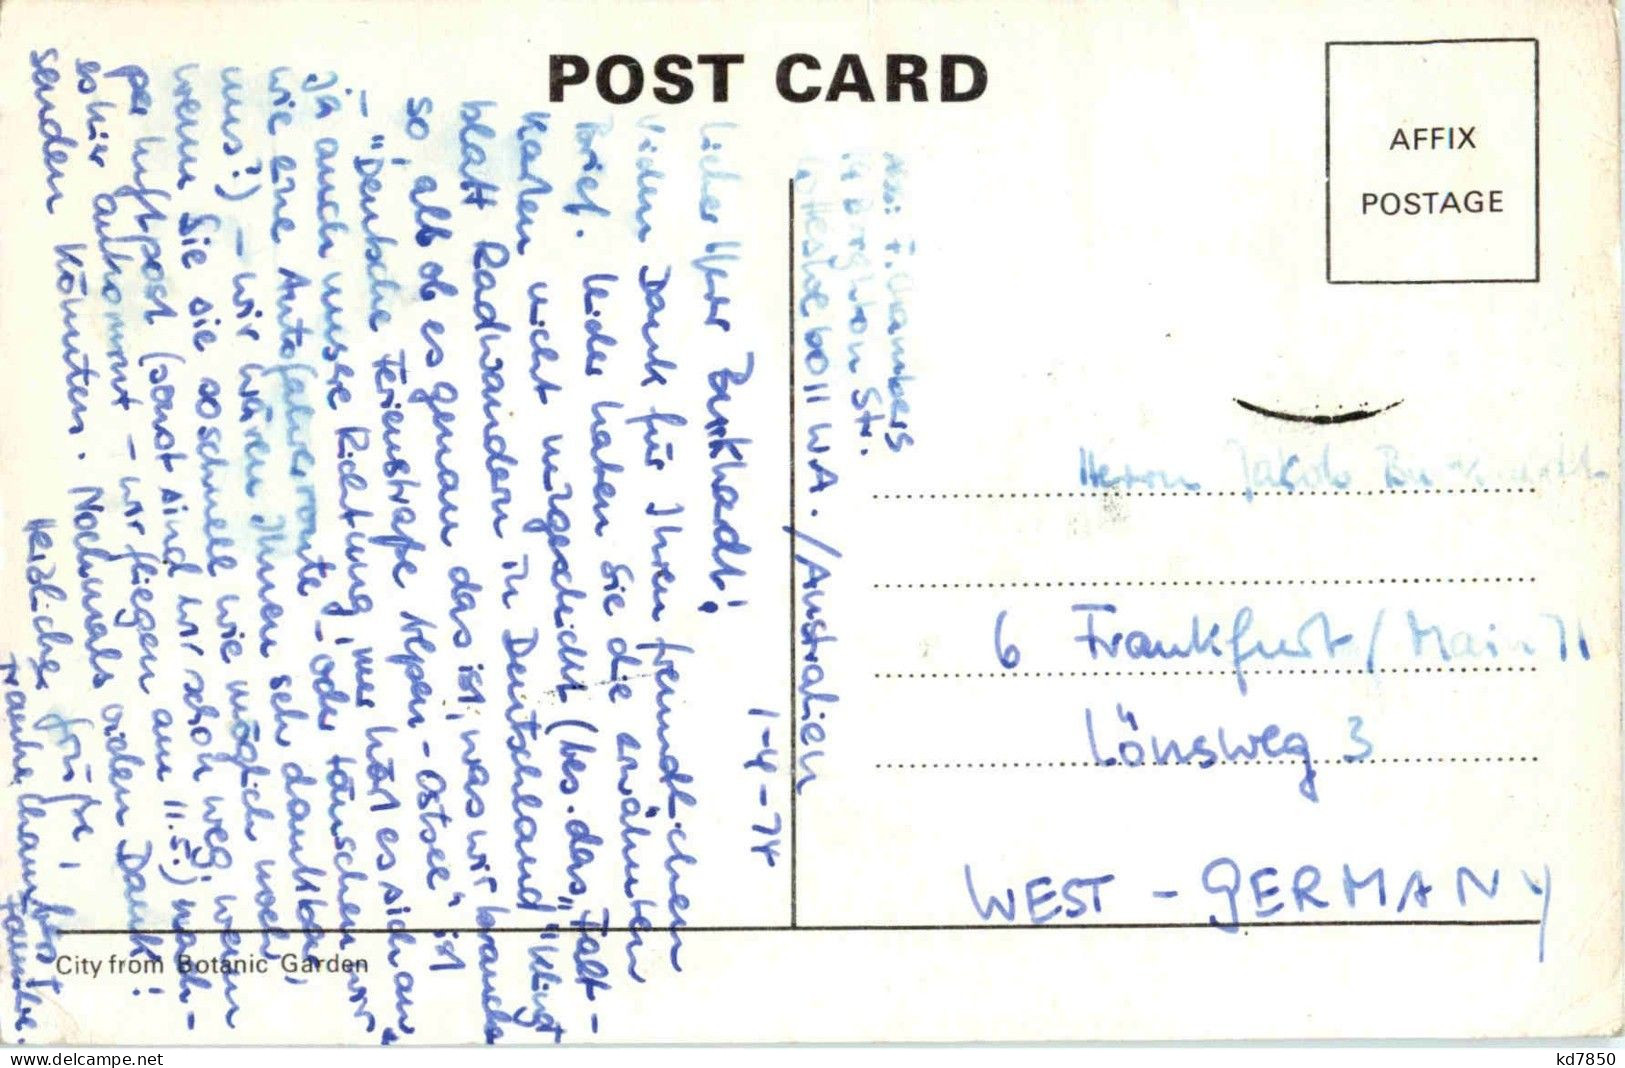 POST CARD
AFFIX
POSTAGE
1-4-74
Lieber Herr Burkhardt!
Vielen Dank für Ihren freundlichen
Brief. Leider haben Sie die erwähnten
Karten nicht mitgeschickt (bes. das "Falt-
blatt Radwandern in Deutschland" klingt
so, als ob es genau das ist, was wir brauchen
- "Deutsche Ferienstraße Alpen-Ostsee" ist
ja auch unsere Richtung, nur hört es sich an
wie eine Autofahrerroute - oder täuschen wir
uns?) - wir wären Ihnen sehr dankbar,
wenn Sie sie so schnell wie möglich noch
per Luftpost (sonst sind wir schon weg, wenn
es hier ankommt - wir fliegen am 11.5.) nach-
senden könnten. Nochmals vielen Dank!
Herzliche Grüße,
Chambers
Abs: F. Chambers
Brighton Str.
W.A./Australien
Herrn Jakob Burkhardt
6 Frankfurt/Main 71
Lönsweg 3
WEST - GERMANY
City from Botanic Garden
kd7850
delcampe.net